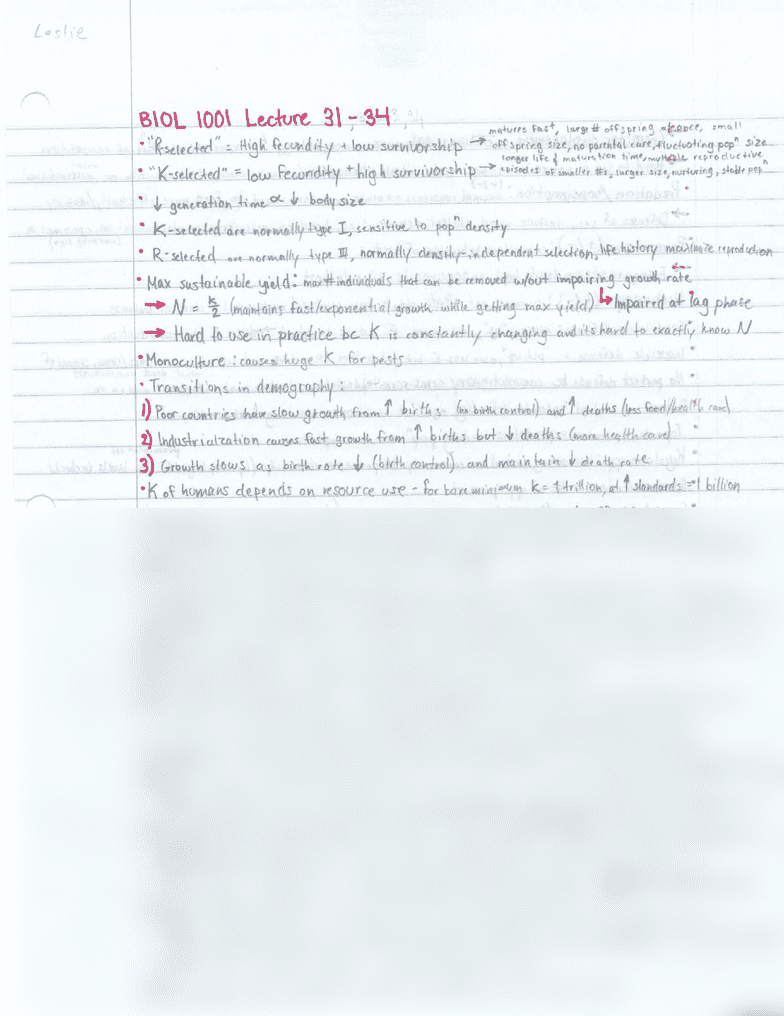 Leslie
BIOL 1001 Lecture 31-34
• "R-selected" = High fecundity + low survivorship → matures fast, large # offspring @ once, small
offspring size, no parental care, fluctuating popⁿ size
• "K-selected" = low fecundity + high survivorship → longer life & maturation time, multiple reproductive
episodes of smaller #s, larger size, nurturing, stable popⁿ
• ↓ generation time ∝ ↓ body size
• K-selected are normally type I, sensitive to popⁿ density
• R-selected are normally type III, normally density-independent selection, life history maximize reproduction
• Max sustainable yield: max # individuals that can be removed w/out impairing growth rate
→ N = K/2 (maintains fast/exponential growth while getting max yield) ↳ Impaired at lag phase
→ Hard to use in practice bc K is constantly changing and its hard to exactly know N
• Monoculture: causes huge K for pests
• Transitions in demography:
1) Poor countries have slow growth from ↑ births (no birth control) and ↑ deaths (less food/health care)
2) Industrialization causes fast growth from ↑ births but ↓ deaths (more health care)
3) Growth slows as birth rate ↓ (birth control) and maintain ↓ death rate
• K of humans depends on resource use - for bare minimum K = 1 trillion, at ↑ standards = 1 billion